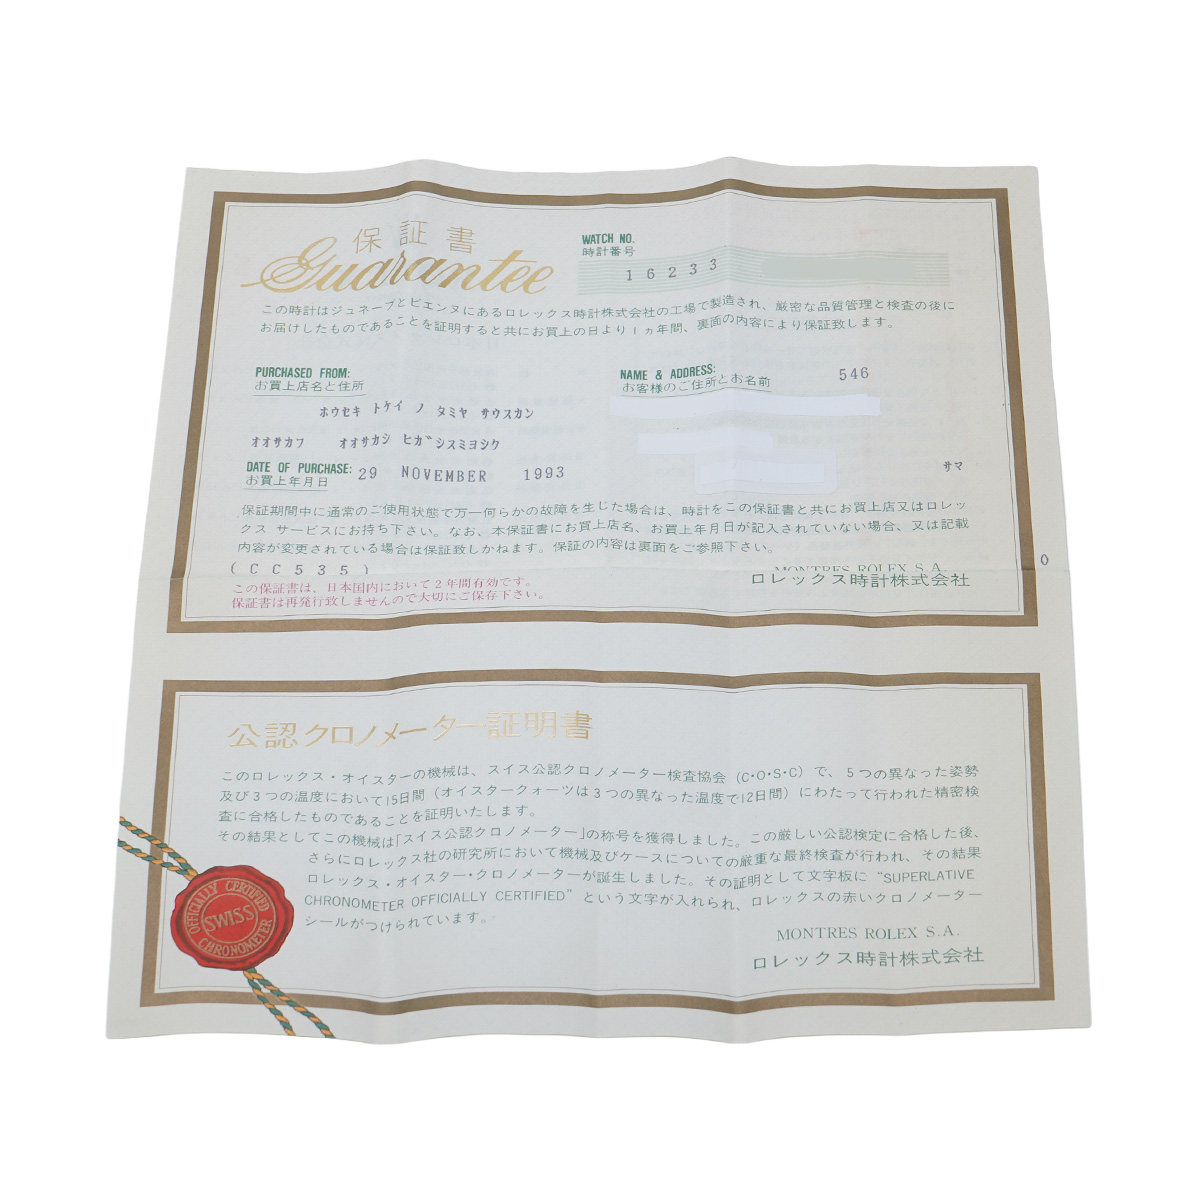 保証書
Guarantee
WATCH NO.
時計番号
16233
この時計はジュネーブとビエンヌにあるロレックス時計株式会社の工場で製造され、厳密な品質管理と検査の後に
お届けしたものであることを証明すると共にお買上の日より1ヵ年間、裏面の内容により保証致します。
PURCHASED FROM:
お買上店名と住所
ホウセキ トケイ ノ タミヤ サウスカン
オオサカフ オオサカシ ヒガシスミヨシク
NAME & ADDRESS:
お客様のご住所とお名前
546
サマ
DATE OF PURCHASE:
お買上年月日
29 NOVEMBER 1993
保証期間中に通常のご使用状態で万一何らかの故障を生じた場合は、時計をこの保証書と共にお買上店又はロレッ
クス サービスにお持ち下さい。なお、本保証書にお買上店名、お買上年月日が記入されていない場合、又は記載
内容が変更されている場合は保証致しかねます。保証の内容は裏面をご参照下さい。
(CC535)
この保証書は、日本国内において2年間有効です。
保証書は再発行致しませんので大切にご保存下さい。
MONTRES ROLEX S.A.
ロレックス時計株式会社
0
公認クロノメーター証明書
このロレックス・オイスターの機械は、スイス公認クロノメーター検査協会 (C・O・S・C) で、5つの異なった姿勢
及び3つの温度において15日間 (オイスタークォーツは3つの異なった温度で12日間) にわたって行われた精密検
査に合格したものであることを証明いたします。
その結果としてこの機械は「スイス公認クロノメーター」の称号を獲得しました。この厳しい公認検定に合格した後、
さらにロレックス社の研究所において機械及びケースについての厳重な最終検査が行われ、その結果
ロレックス・オイスター・クロノメーターが誕生しました。その証明として文字板に “SUPERLATIVE
CHRONOMETER OFFICIALLY CERTIFIED” という文字が入れられ、ロレックスの赤いクロノメーター
シールがつけられています。
MONTRES ROLEX S.A.
ロレックス時計株式会社
OFFICIALLY CERTIFIED
SWISS
CHRONOMETER